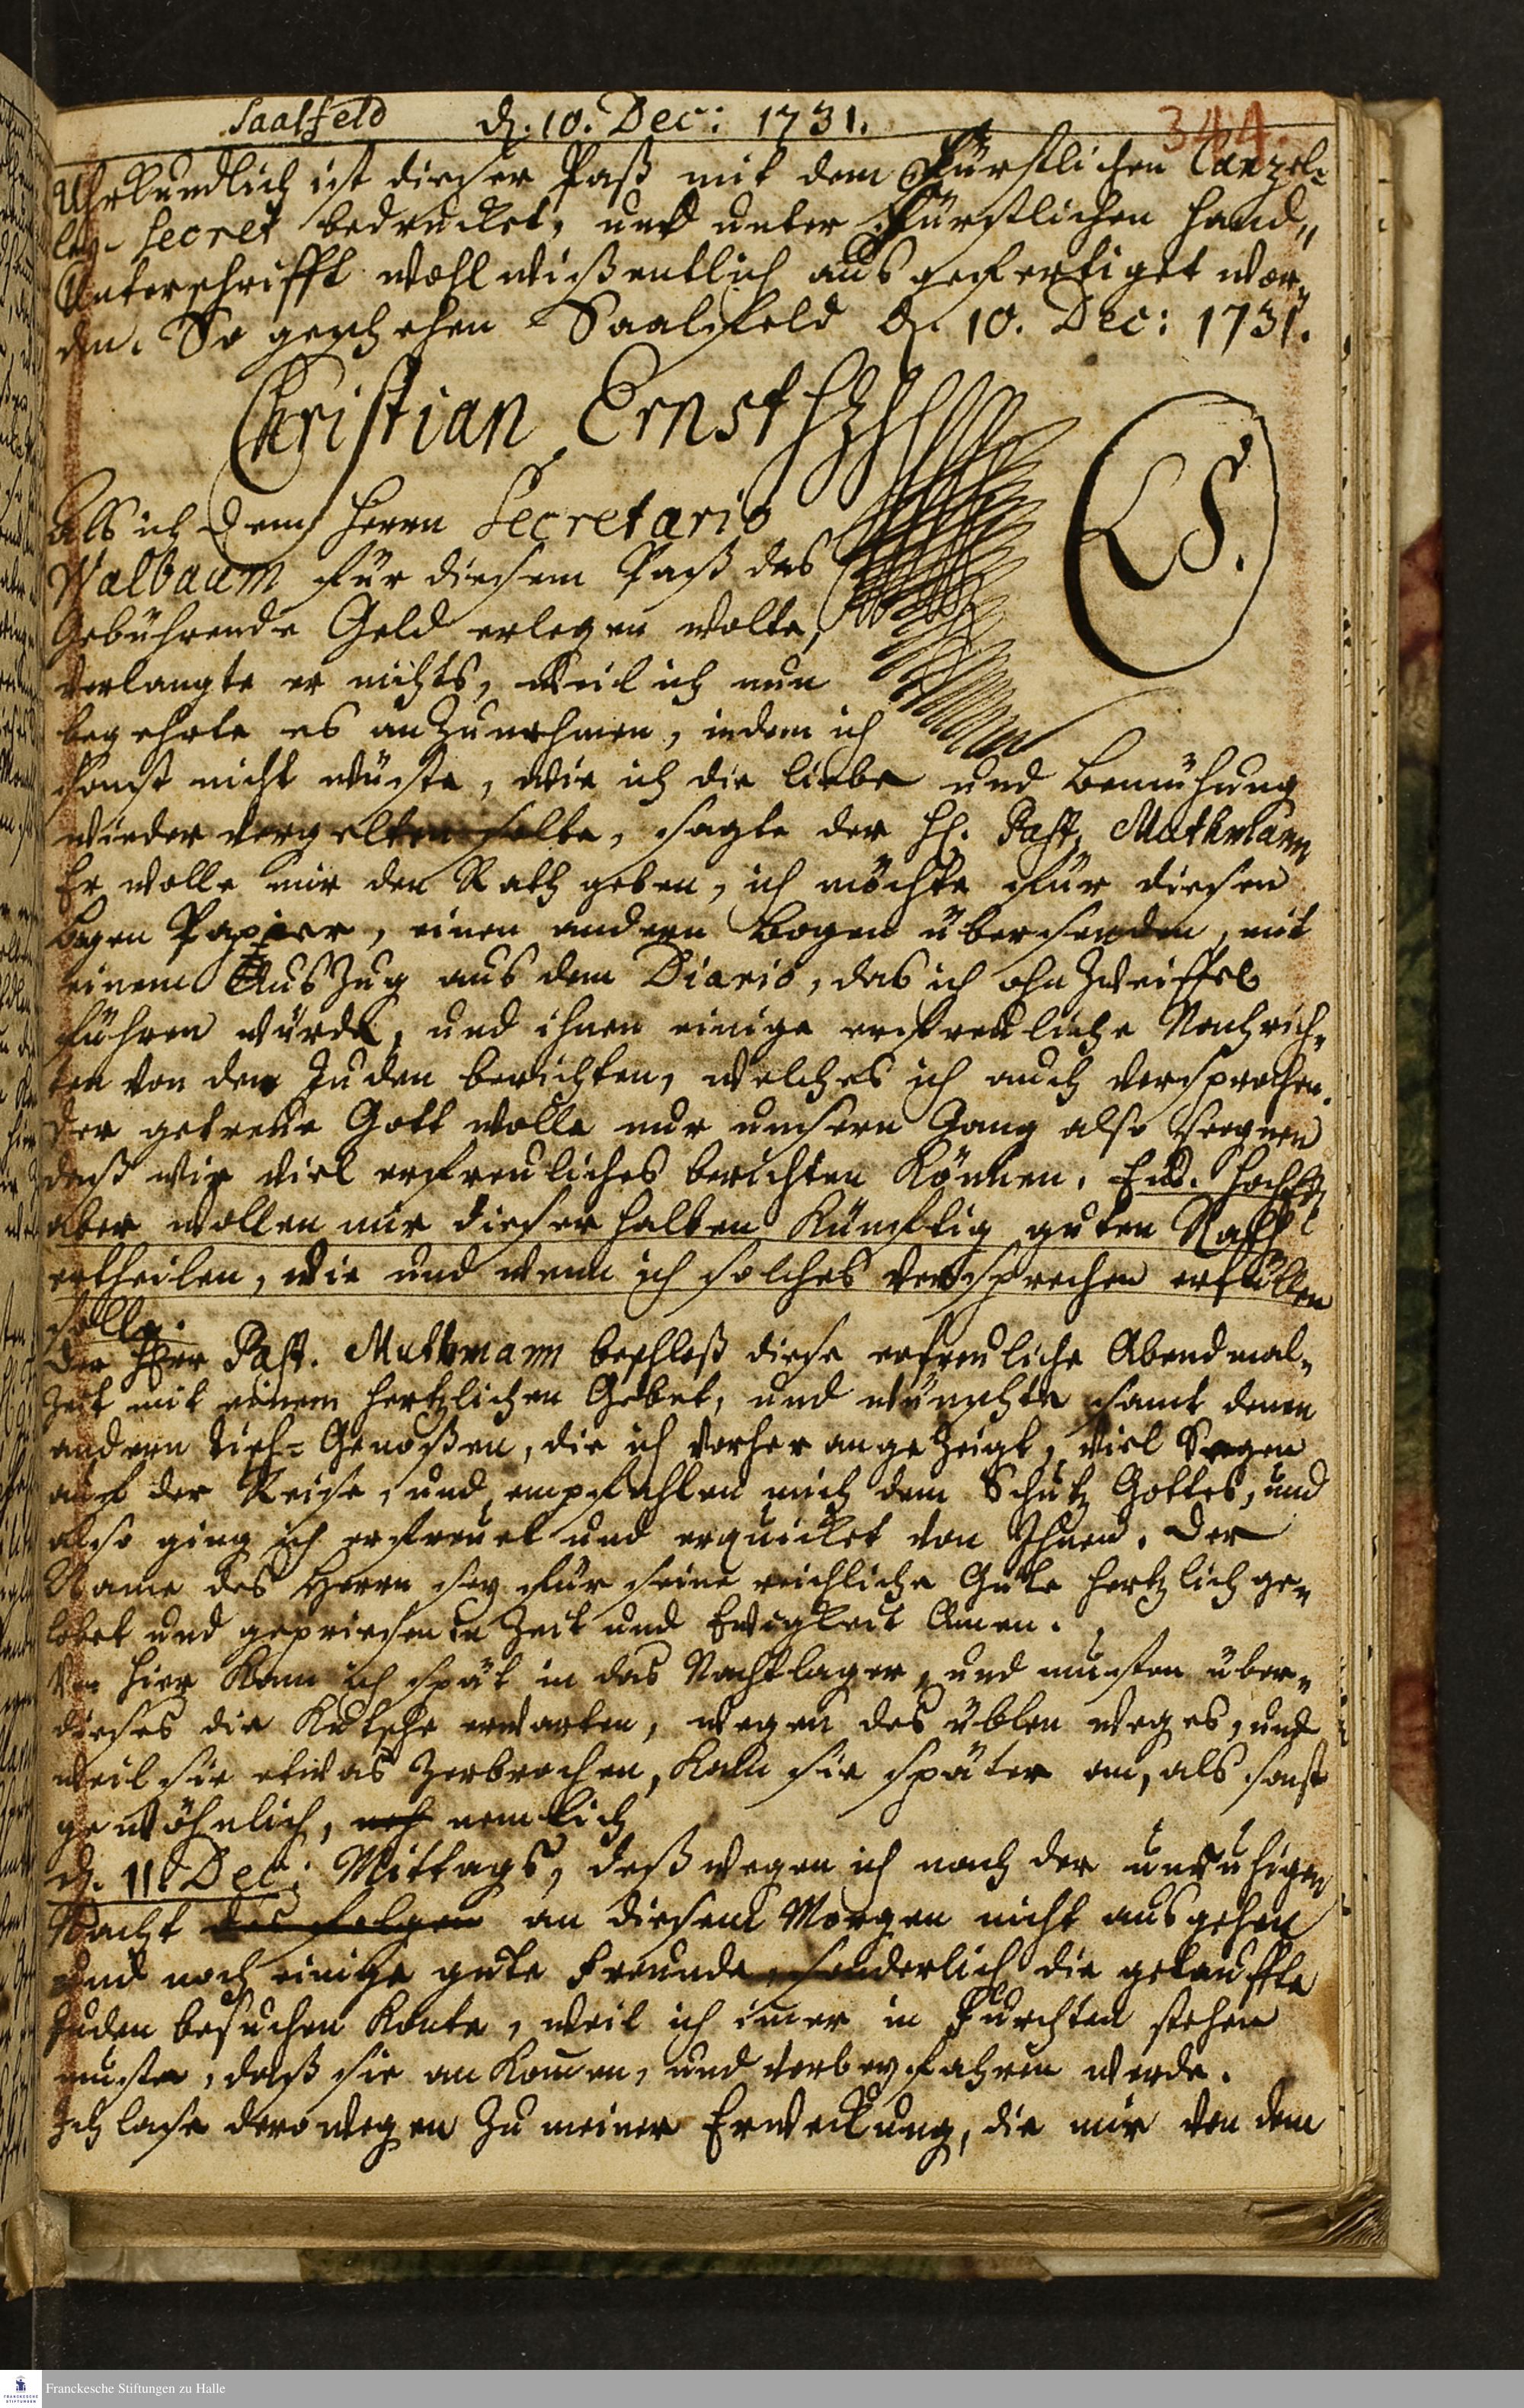 Saalfeld d. 10. Dec: 1731.
344.
Uhrkundlich ist dieser Paß mit dem Fürstlichen Cantzel-
ley-Secret bedrucket, und unter Fürstlichen Hand„
Unterschrifft wohlwißentlich ausgefertiget wor„
den. So geschehen Saalfeld d. 10. Dec: 1731.
Christian Ernst HzS
LS.
Als ich dem Herrn Secretario
Walbaum für diesem Paß das
Gebührende Geld erlegen wolte,
verlangte er nichts, weil ich nun
begehrte es anzunehmen, indem ich
sonst nicht wüste, wie ich die Liebe und Bemühung
wieder vergelten solte, sagte der H. Past. Muthmann
Er wolle mir den Rath geben, ich möchte für diesen
Bogen Papier, einen andern Bogen übersenden, mit
einem Auszug aus dem Diario, das ich ohn Zweiffel
führen würde, und ihnen einige erfreuliche Nachrich„
ten von den Juden berichten, welches ich auch versprochen.
Der getreue Gott wolle nur unsern Gang also seegnen
daß wir viel erfreuliches berichten können. Ew. Hoch
aber wollen mir dieser halben künftig guten Rath
ertheilen, wie und wenn ich solches versprechen erfüllen
solle.
Der Herr Past. Muthmann beschloß diese erfreuliche Abendmal„
zeit mit einem hertzlichen Gebet, und wünschte samt denen
andern Tisch-Genoßen, die ich vorher angezeigt, viel Segen
auf der Reise, und empfahlen mich dem Schutz Gottes, und
also ging ich erfreuet und erquicket von Ihnen. Der
Name des Herrn sey für seine reichliche Güte hertzlich ge„
lobet und gepriesen in Zeit und Ewigkeit Amen.
Von hier kam ich spät in das Nachtlager, und musten über„
dieses die Kutsche erwarten, wegen des üblen weges, und
weil sie etwas zerbrochen, kam sie später an, als sonst
gewöhnlich, nemlich
d. 11. Dec: Mittags, deßwegen ich nach der unruhigen
Nacht des folgen an diesem Morgen nicht ausgehen
und noch einige gute Freunde, sonderlich die getauffte
Juden besuchen konte, weil ich imer in Furchten stehen
muste, daß sie ankomen, und vorbey fahren werde.
Ich lase derowegen zu meiner Erweckung, die mir von dem
Franckesche Stiftungen zu Halle